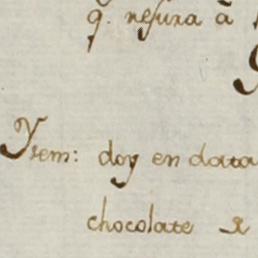 q. resura à
Ytem: doy en data
chocolate